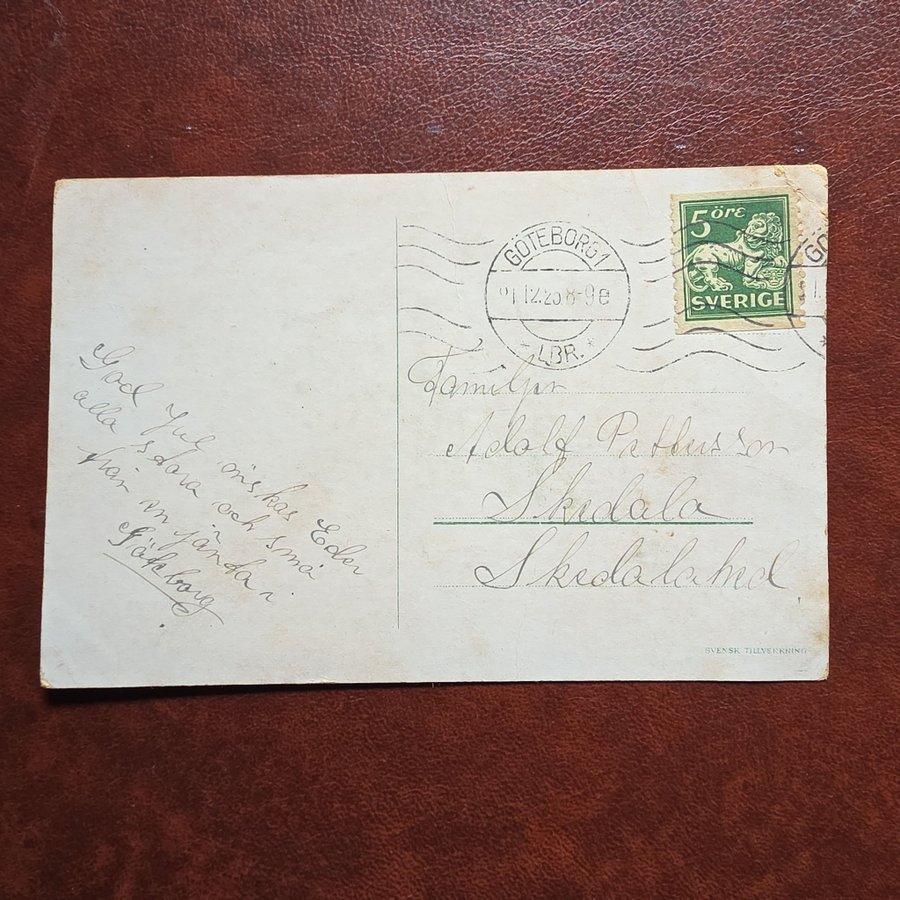 God Jul önskas Eder
alla stora och små
från en
Göteborg
GÖTEBORG 1
12.25.8-9 e
* LBR. *
5 öre
SVERIGE
GÖ
Familjen
Adolf Pettersson
Skedala
Skedalahed
SVENSK TILLVERKNING